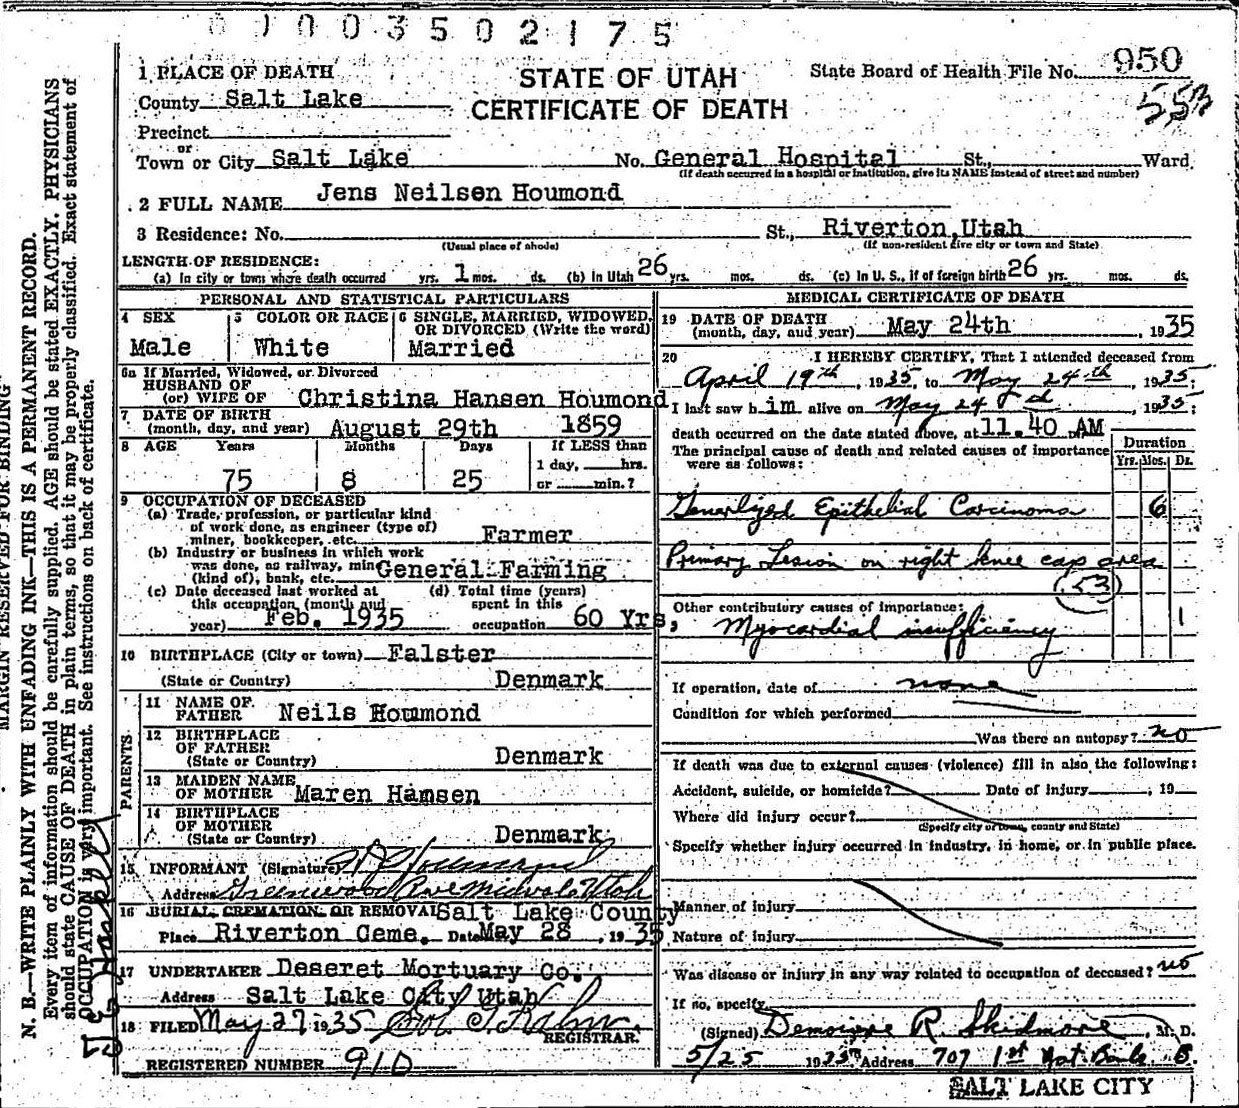 0 1 0 0 3 5 0 2 1 7 5
STATE OF UTAH
CERTIFICATE OF DEATH
State Board of Health File No. 950
1 PLACE OF DEATH
County Salt Lake
Precinct
or
Town or City Salt Lake No. General Hospital St., Ward
(If death occurred in a hospital or institution, give its NAME instead of street and number)
2 FULL NAME Jens Neilsen Houmond
3 Residence: No. St., Riverton, Utah
(Usual place of abode) (If non-resident give city or town and State)
LENGTH OF RESIDENCE:
(a) In city or town where death occurred yrs. 1 mos. ds. (b) in Utah 26 yrs. mos. ds. (c) In U. S., if of foreign birth 26 yrs. mos. ds.
PERSONAL AND STATISTICAL PARTICULARS
4 SEX 5 COLOR OR RACE 6 SINGLE, MARRIED, WIDOWED,
OR DIVORCED (Write the word)
Male White Married
6a If Married, Widowed, or Divorced
HUSBAND OF
(or) WIFE OF Christina Hansen Houmond
7 DATE OF BIRTH
(month, day, and year) August 29th 1859
8 AGE Years Months Days If LESS than
1 day, hrs.
75 8 25 or min.?
9 OCCUPATION OF DECEASED
(a) Trade, profession, or particular kind
of work done, as engineer (type of)
miner, bookkeeper, etc. Farmer
(b) Industry or business in which work
was done, as railway, mine
(kind of), bank, etc. General Farming
(c) Date deceased last worked at (d) Total time (years)
this occupation (month and spent in this
year) Feb. 1935 occupation 60 Yrs,
10 BIRTHPLACE (City or town) Falster
(State or Country) Denmark
PARENTS
11 NAME OF
FATHER Neils Houmond
12 BIRTHPLACE
OF FATHER
(State or Country) Denmark
13 MAIDEN NAME
OF MOTHER Maren Hamsen
14 BIRTHPLACE
OF MOTHER
(State or Country) Denmark
15 INFORMANT (Signature) Houmand
Address Greenwood Ave Midvale Utah
16 BURIAL, CREMATION, OR REMOVAL Salt Lake County
Place Riverton Ceme. Date May 28, 1935
17 UNDERTAKER Deseret Mortuary Co.
Address Salt Lake City Utah
18 FILED May 27 1935
REGISTRAR.
REGISTERED NUMBER 910
MEDICAL CERTIFICATE OF DEATH
19 DATE OF DEATH
(month, day, and year) May 24th, 1935
20 I HEREBY CERTIFY, That I attended deceased from
April 19th, 1935, to May 24th, 1935;
I last saw him alive on May 24, 1935;
death occurred on the date stated above, at 11.40 AM
The principal cause of death and related causes of importance
were as follows:
Duration
Yrs. Mos. Ds.
Generlized Epithelial Carcinoma 6
Primary Lesion on right knee cap area
(53)
Other contributory causes of importance:
Myocardial insufficiency 1
If operation, date of none
Condition for which performed
Was there an autopsy? no
If death was due to external causes (violence) fill in also the following:
Accident, suicide, or homicide? Date of injury, 19
Where did injury occur?
(Specify city or town, county and State)
Specify whether injury occurred in industry, in home, or in public place.
Manner of injury
Nature of injury
Was disease or injury in any way related to occupation of deceased? no
If no, specify
(Signed) R. Skidmore, M. D.
5/25 1935 Address 707 1st Nat Bank B.
SALT LAKE CITY
MARGIN RESERVED FOR BINDING
N. B.—WRITE PLAINLY WITH UNFADING INK—THIS IS A PERMANENT RECORD.
Every item of information should be carefully supplied. AGE should be stated EXACTLY. PHYSICIANS
should state CAUSE OF DEATH in plain terms, so that it may be properly classified. Exact statement of
OCCUPATION is very important. See instructions on back of certificate.